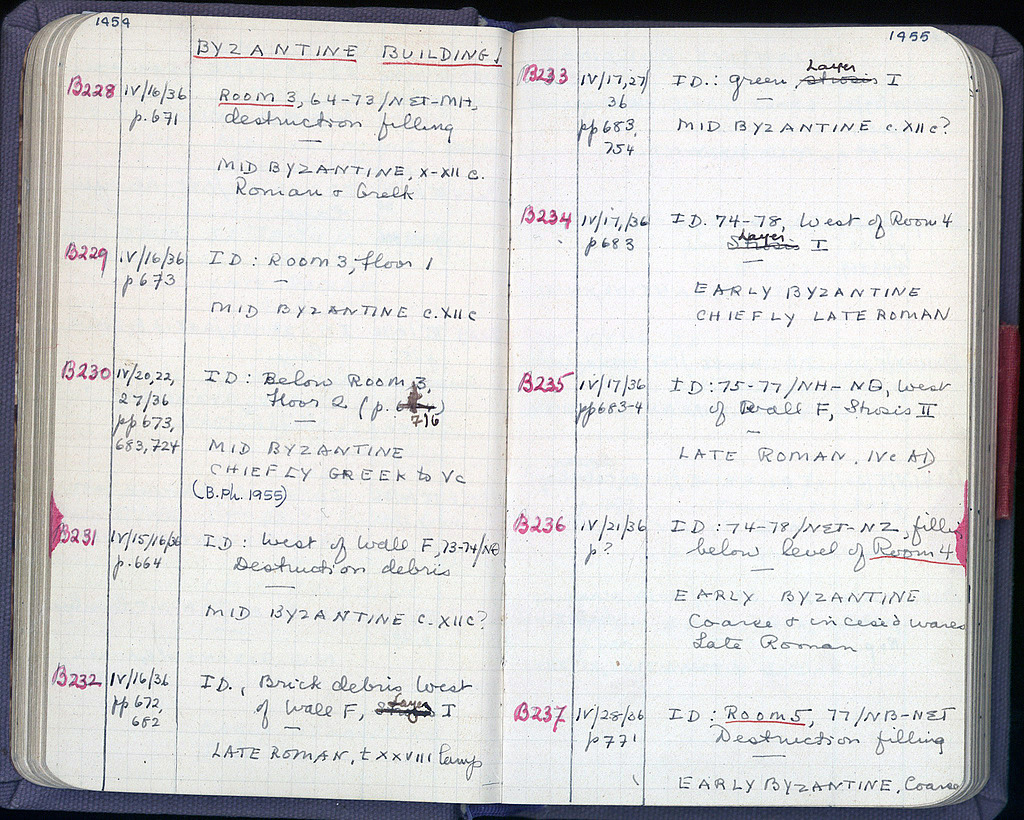 1454
BYZANTINE BUILDING I
B228 IV/16/36 ROOM 3, 64-73/NET-MH,
p.671 destruction filling
MID BYZANTINE, X-XII c.
Roman & Greek
B229 IV/16/36 ID: ROOM 3, floor 1
p673
MID BYZANTINE c.XII c
B230 IV/20,22, ID: Below Room 3,
27/36 floor 2 (p. 716)
pp673,
683,724 MID BYZANTINE
CHIEFLY GREEK to Vc
(B.Ph. 1955)
B231 IV/15/16/36 ID: West of Wall F, 73-74/NΘ
p.664 Destruction debris
MID BYZANTINE c.XII c?
B232 IV/16/36 ID., Brick debris West
pp 672, of Wall F, Layer I
682
LATE ROMAN, t XXVIII lamp
1455
B233 IV/17,27/ ID.: green, Layer I
36
pp 683, MID BYZANTINE c.XII c?
754
B234 IV/17,/36 ID. 74-78, West of Room 4
p683 Layer I
EARLY BYZANTINE
CHIEFLY LATE ROMAN
B235 IV/17/36 ID: 75-77/NH-NΘ, West
pp683-4 of Wall F, Strosis II
LATE ROMAN, IVc AD
B236 IV/21/36 ID: 74-78/NET-NZ, filling
p? below level of Room 4
EARLY BYZANTINE
Coarse & incised wares
Late Roman
B237 IV/28/36 ID: Room 5, 77/NB-NET
p771 Destruction filling
EARLY BYZANTINE, Coarse